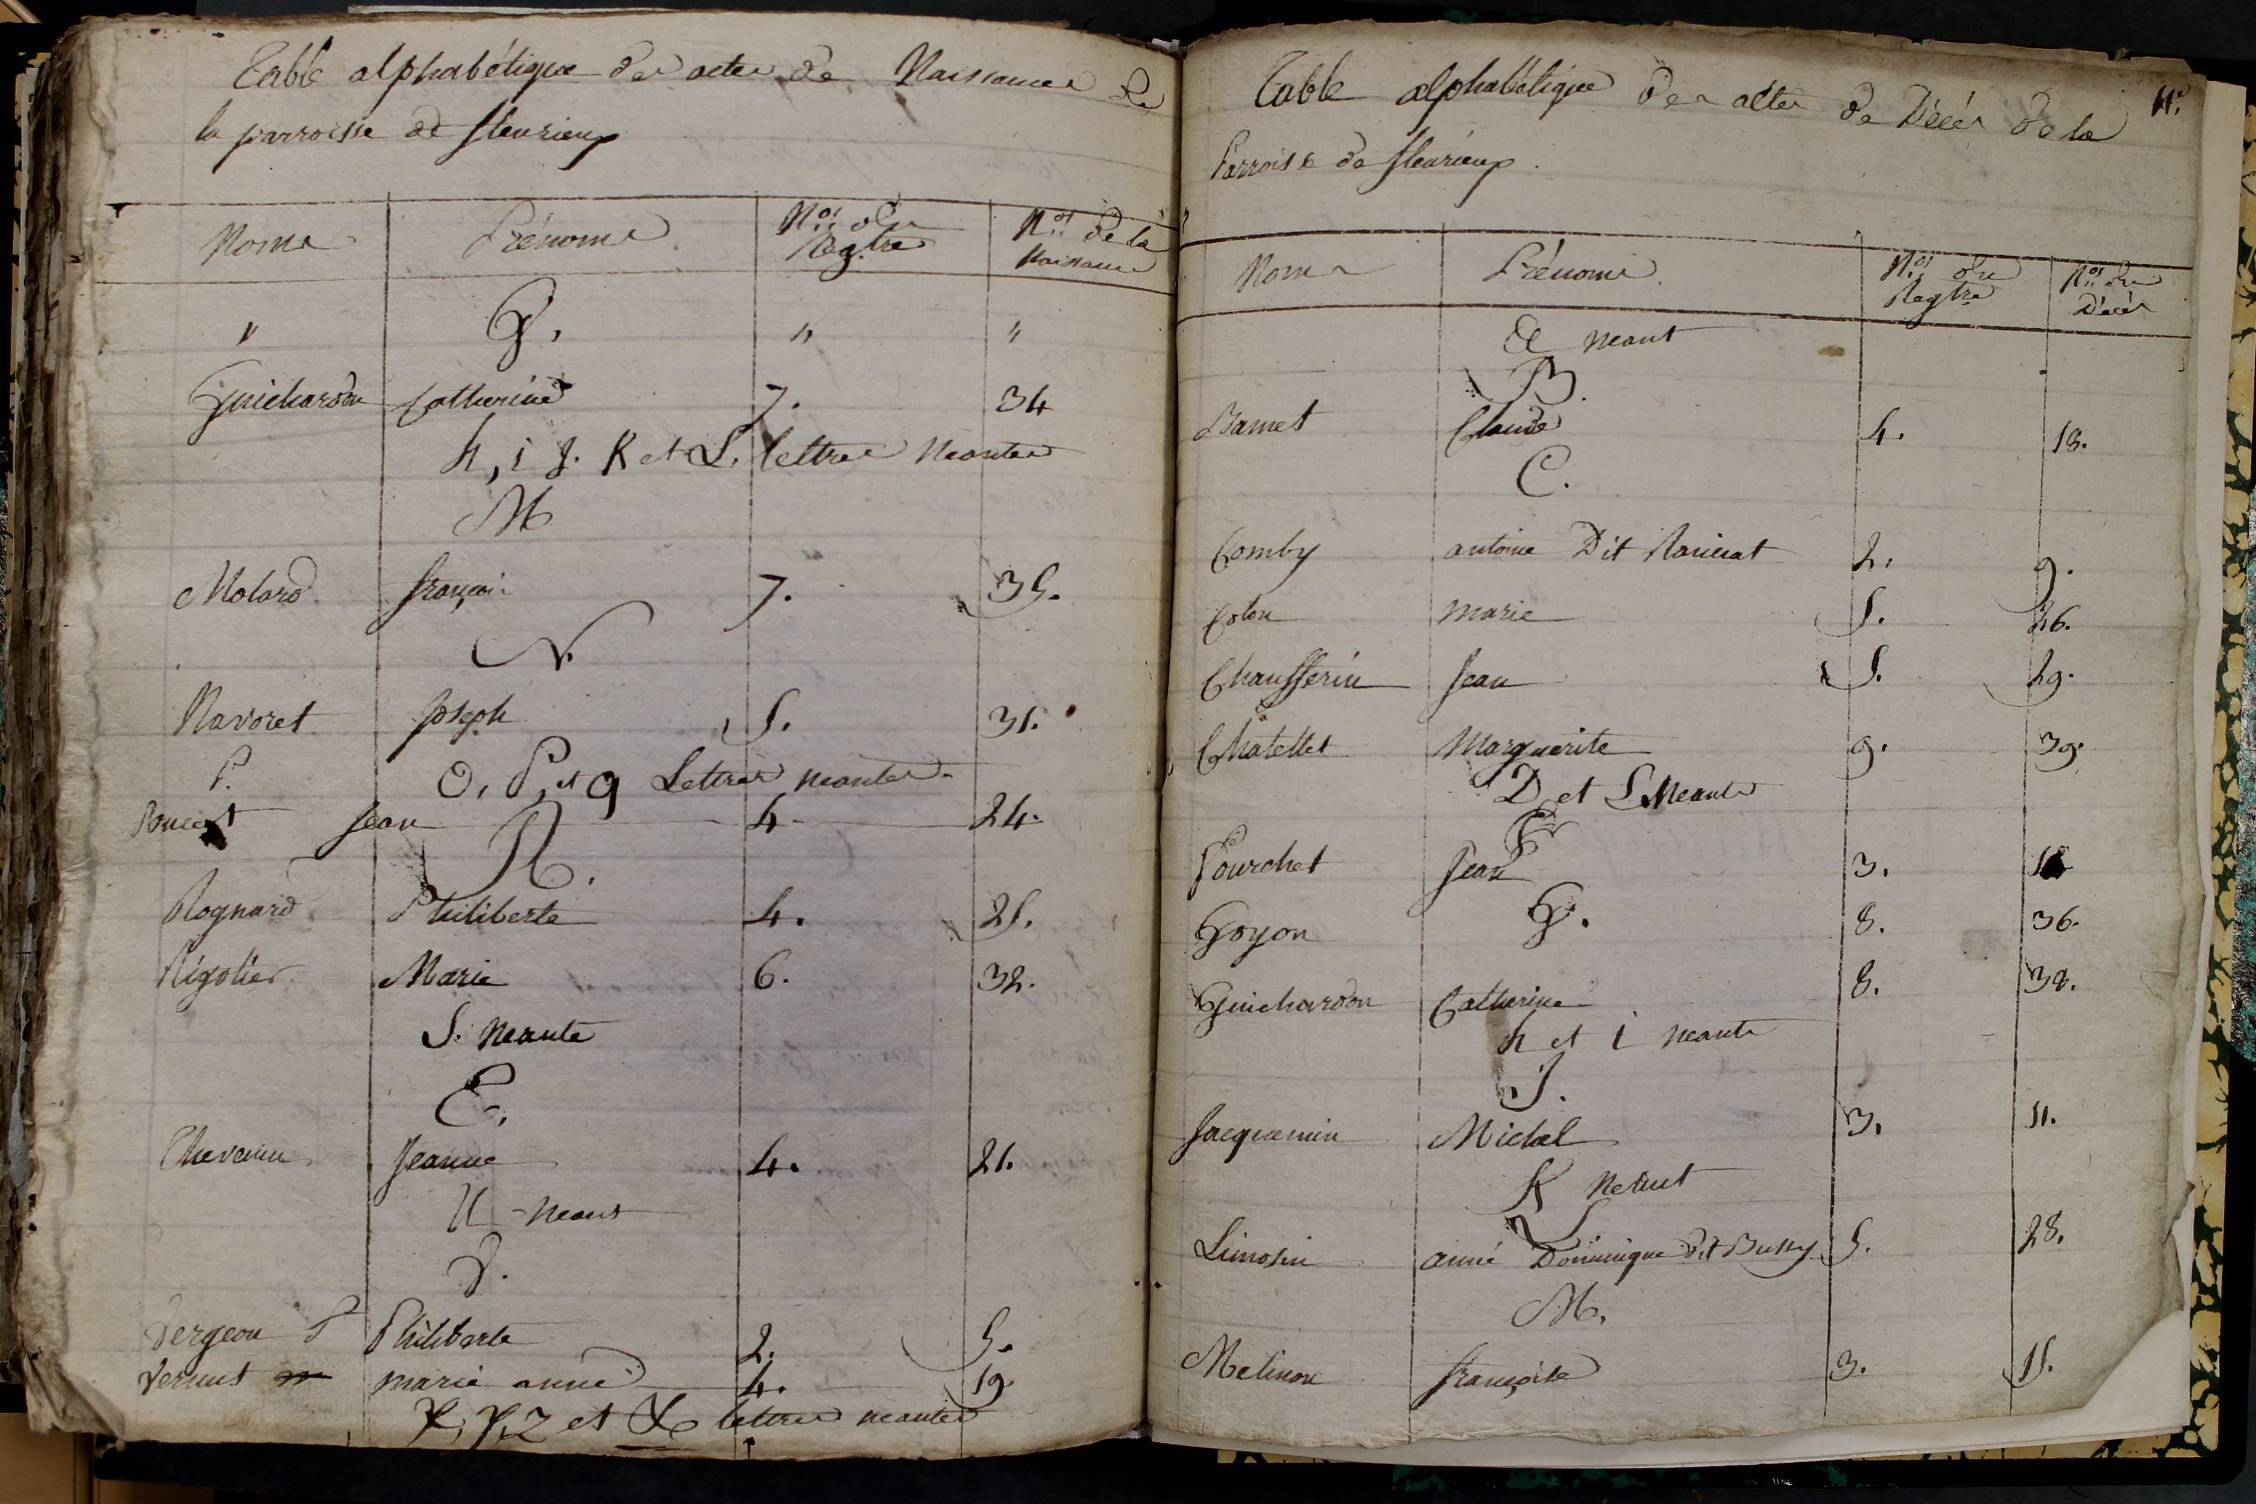 Table alphabétique des actes de Naissances de
la parroisse de fleurieux
Noms Prénoms Nos. du Regtre Nos. de la Naissance
" G. " "
Guichardon Catherine 7. 34
h, i J. K et L. lettres Neantes
M
Molard françois 7. 35.
N.
Navoret Joseph 5. 31.
P. O, P, et q Lettres neantes
Poncet Jean 4. 24.
R.
Rognard Philiberte 4. 25.
Rigolier Marie 6. 32.
S. Neante
T.
Thevenin Jeanne 4. 21.
U - Neant
V.
Vergeon P Philiberte 2. 5.
Vernus marie anne 4. 19.
X, Y, Z et & lettres neantes
Table alphabétique des actes de Décès de la
11.e
Parroisse de fleurieux.
Noms Prénoms Nos. du Regtre Nos. du Décès
A Neant
B.
Bamet Claude 4. 18.
C.
Comby antoine Dit 2. 9.
Colon marie 5. 26.
Chaufferin Jean 5. 29.
Chatellet Marguerite 9. 39.
D et E Neante
F
Fourchet Jean 3.
Goyon G. 8. 36.
Guichardon Catherine 8. 38.
h et i neante
J.
Jacquemin Michel 3. 11.
K Neant
L
Limosin anne Dominique dit Bussy 5. 28.
M.
Melinon françoise 3. 15.